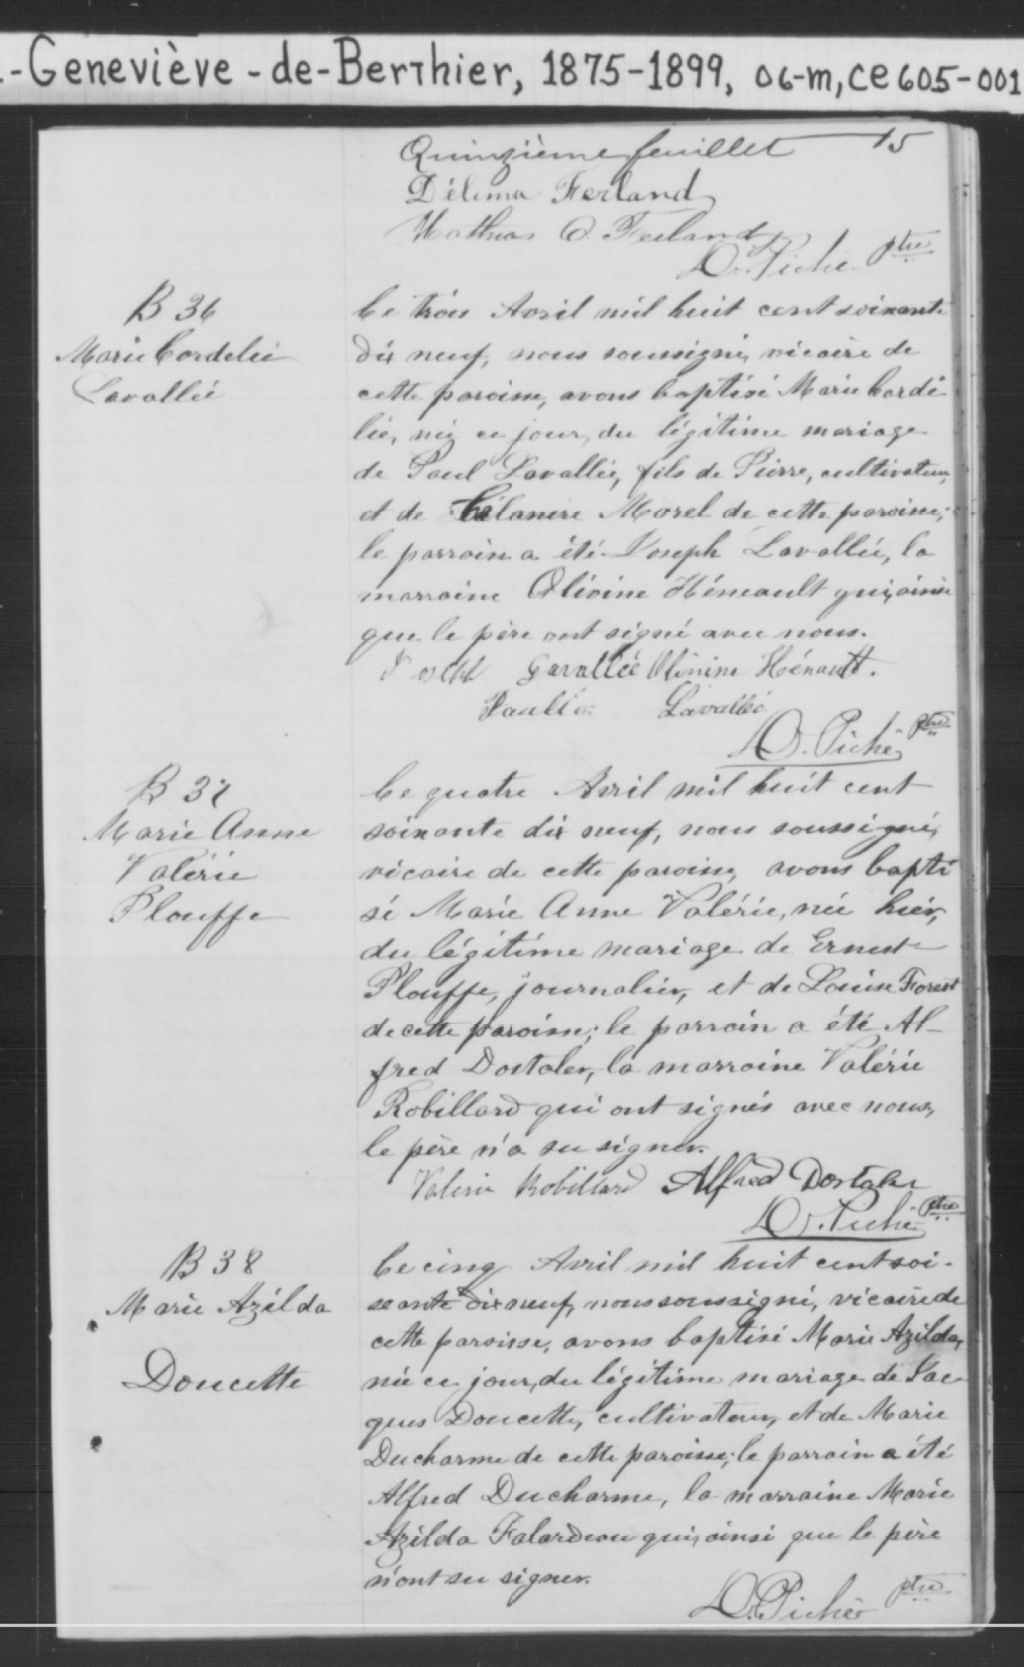 .-Geneviève-de-Berthier, 1875-1899, 06-m, CE605-001
Quinzième feuillet 15
Délima Ferland
Mathias O. Ferland
D. Piché ptre
B 36
Marie Cordelie
Lavallée
Ce trois Avril mil huit cent soixante
dix neuf, nous soussigné, vicaire de
cette paroisse, avons baptisé Marie Cordé
lie, née ce jour, du légitime mariage
de Paul Lavallée, fils de Pierre, cultivateur,
et de Morel de cette paroisse;
le parrain a été Joseph Lavallée, la
marraine Olivine Héneault qui, ainsi
que le père ont signé avec nous.
Joseph Lavallée Olivine Hénault.
Lavallée
D. Piché ptre
B 37
Marie Anne
Valérie
Plouffe
Ce quatre Avril mil huit cent
soixante dix neuf, nous soussigné,
vicaire de cette paroisse, avons bapti
sé Marie Anne Valérie, née hier,
du légitime mariage de Ernest
Plouffe, journalier, et de Louise Forest
de cette paroisse; le parrain a été Al-
fred Dostaler, la marraine Valérie
Robillard qui ont signés avec nous,
le père n'a su signer.
Valérie Robillard Alfred Dostaler
D. Piché ptre
B 38
Marie Azilda
Doucette
Ce cinq Avril mil huit cent soi-
xante dix neuf, nous soussigné, vicaire de
cette paroisse, avons baptisé Marie Azilda,
née ce jour, du légitime mariage de Jac
ques Doucette, cultivateur, et de Marie
Ducharme de cette paroisse; le parrain a été
Alfred Ducharme, la marraine Marie
Azilda Falardeau qui, ainsi que le père
n'ont su signer.
D. Piché ptre